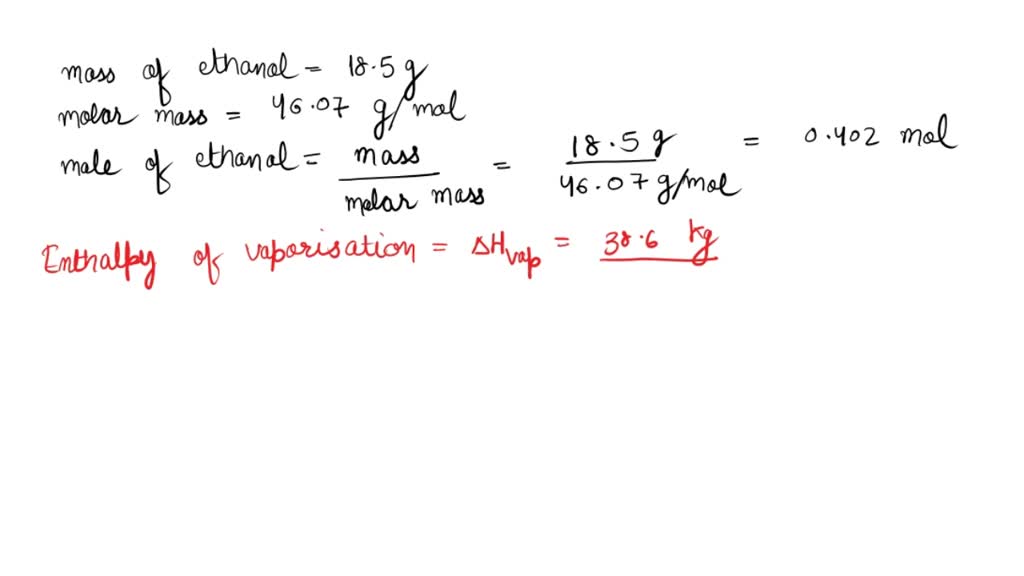 mass of ethanol = 18.5 g
molar mass = 46.07 g/mol
male of ethanol = mass / molar mass = 18.5 g / 46.07 g/mol = 0.402 mol
Enthalpy of vaporisation = ΔHvap = 38.6 kg